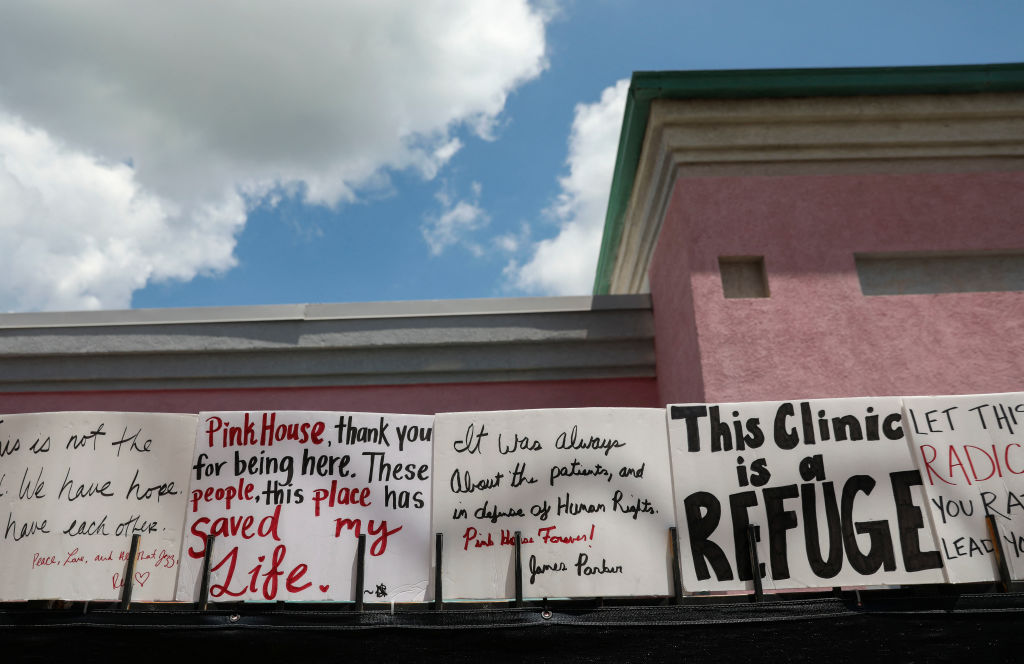 This is not the
We have hope.
have each other.
Peace, Love, and All That Jazz,
Pink House, thank you
for being here. These
people, this place has
saved my
Life.
It was always
About the patients, and
in defense of Human Rights.
Pink House Forever!
James Parker
This Clinic
is a
REFUGE
LET THIS
RADIC
YOU RA
LEAD YO